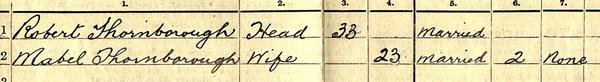 1. 2. 3. 4. 5. 6. 7.
1 Robert Thornborough Head 33 Married
2 Mabel Thornborough Wife 23 Married 2 None